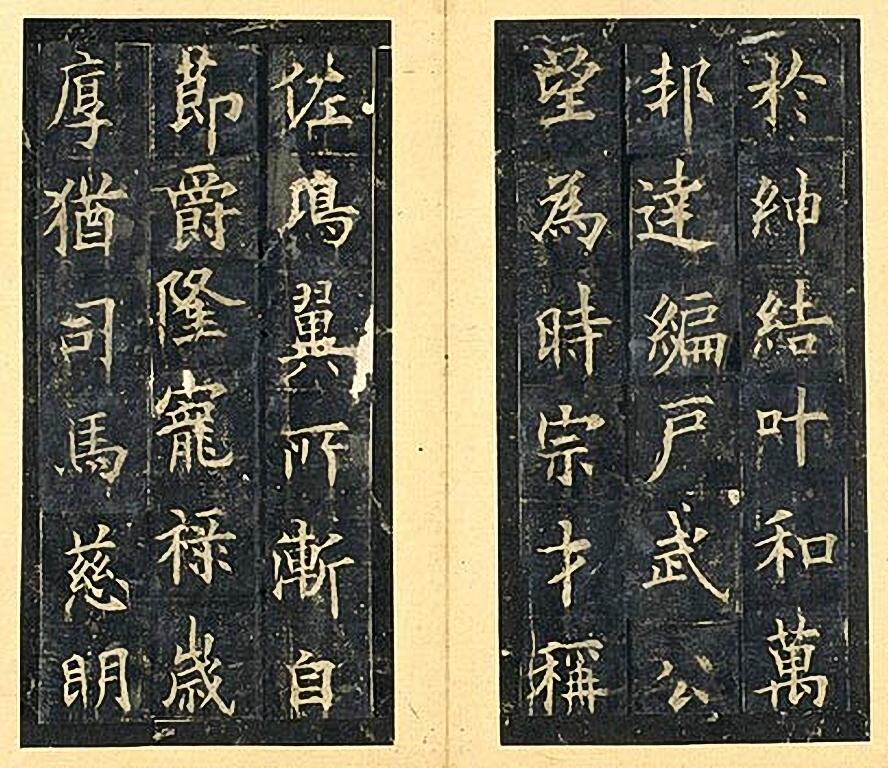 於紳結叶和萬
邦達編戸武公
望為時宗才稱
佐鳴翼所漸自
莭爵隆寵禄歳
厚猶司馬慈明